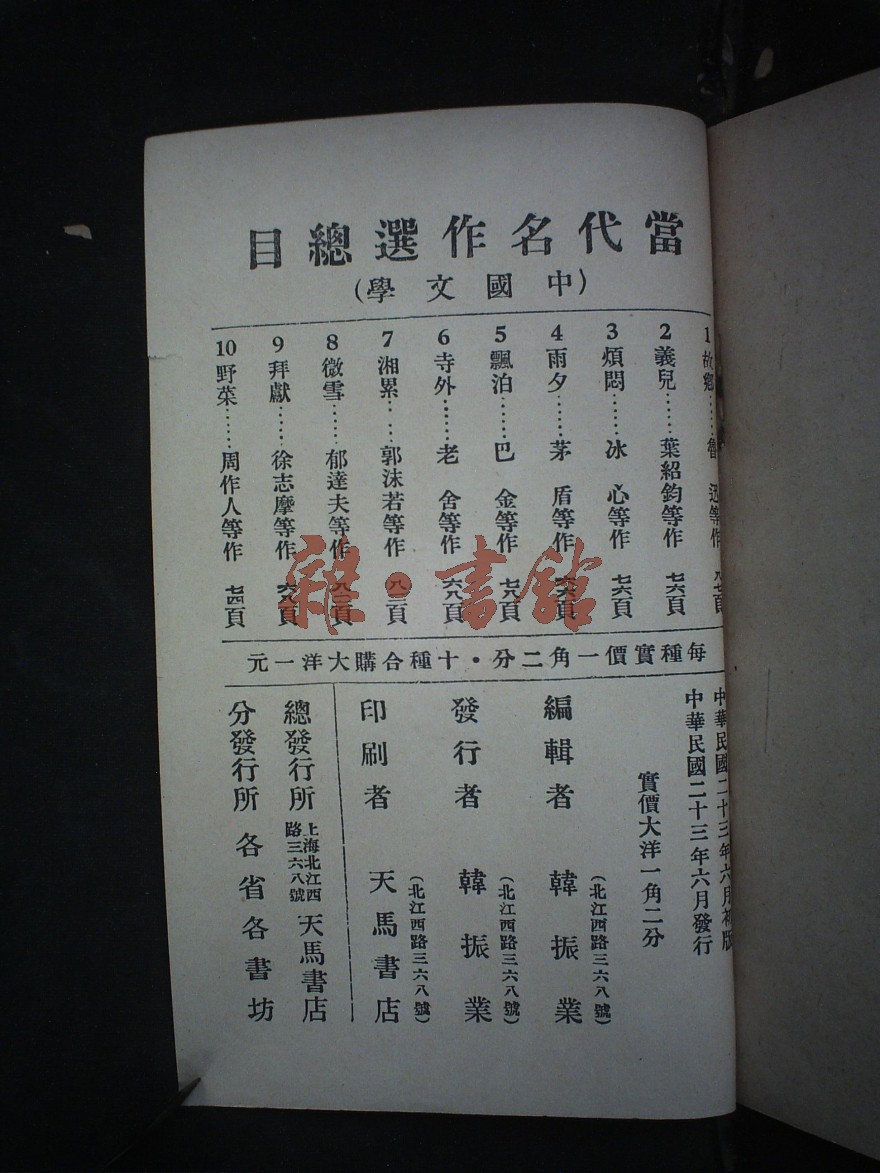 當代名作選總目
（中國文學）
1 故鄉……魯　迅等作　頁
2 義兒……葉紹鈞等作　七六頁
3 煩悶……冰　心等作　七六頁
4 雨夕……茅　盾等作　頁
5 飄泊……巴　金等作　頁
6 寺外……老　舍等作　六八頁
7 湘累……郭沫若等作　八二頁
8 微雪……郁達夫等作　頁
9 拜獻……徐志摩等作　六八頁
10 野菜……周作人等作　七四頁
每種實價一角二分・十種合購大洋一元
中華民國二十三年六月初版
中華民國二十三年六月發行
實價大洋一角二分
編輯者　韓振業
（北江西路三六八號）
發行者　韓振業
（北江西路三六八號）
印刷者　天馬書店
（北江西路三六八號）
總發行所　上海北江西路三六八號　天馬書店
分發行所　各省各書坊
雜・書館